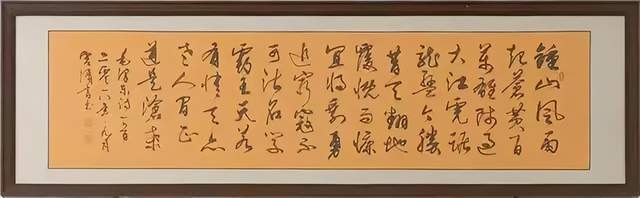 鍾山風雨
起蒼黄百
萬雄師過
大江虎踞
龍盤今勝
昔天翻地
覆慨而慷
宜将剩勇
追窮寇不
可沽名学
霸王天若
有情天亦
老人间正
道是滄桑
毛澤东诗一首
二零一八年九月